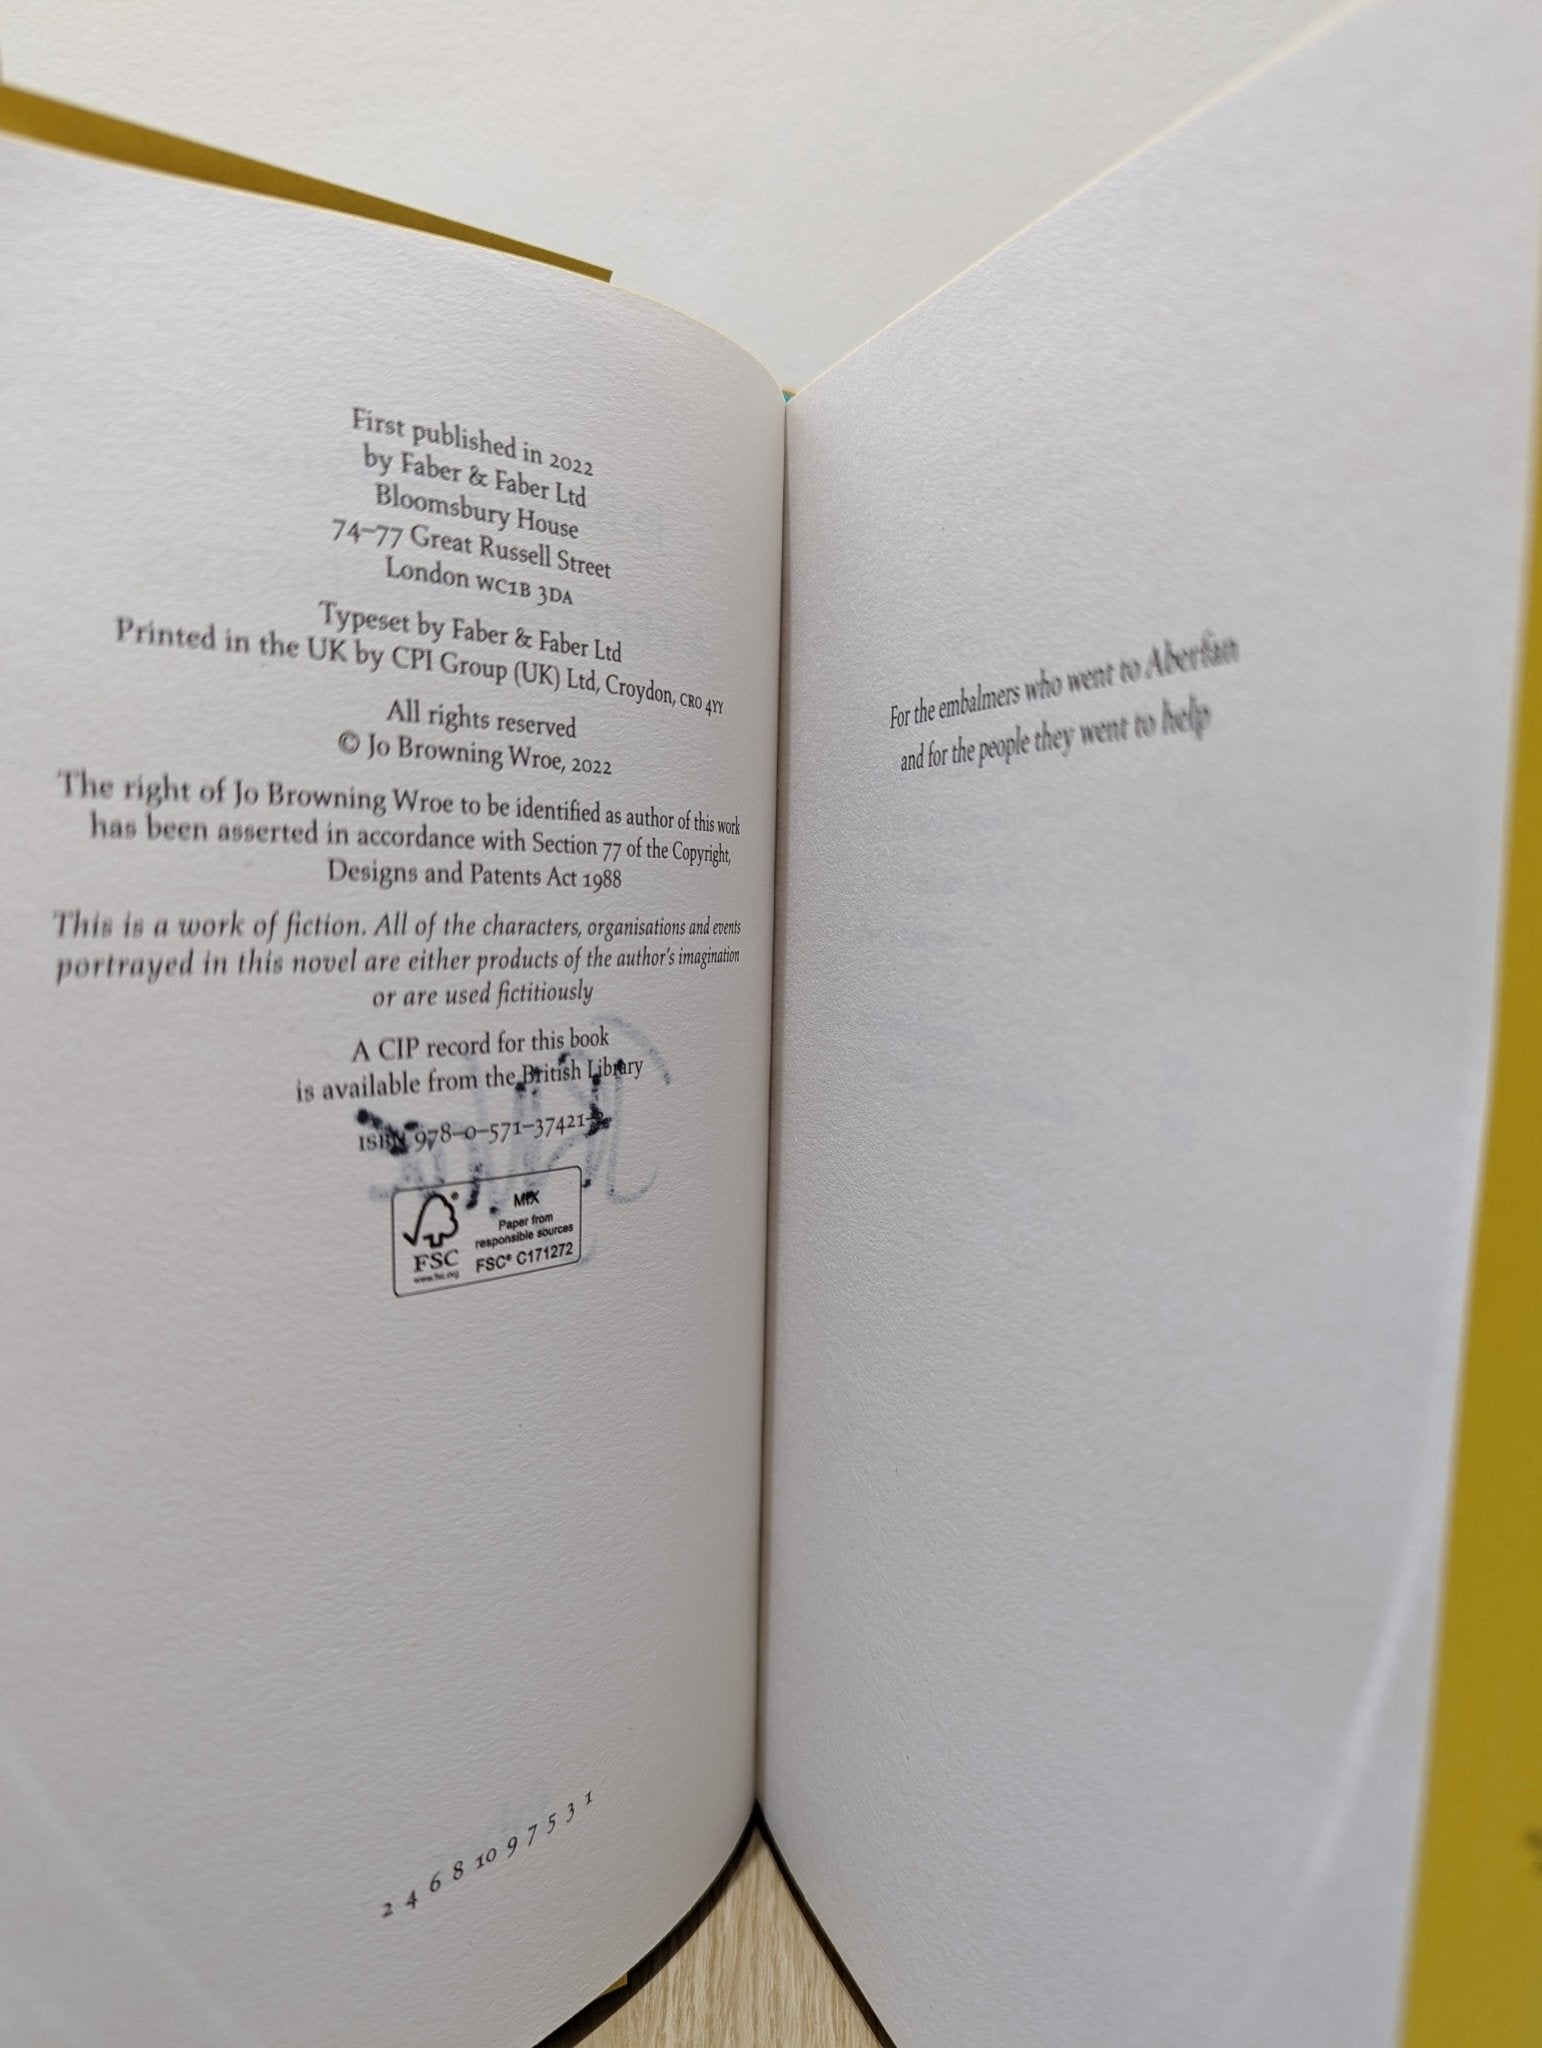 First published in 2022
by Faber & Faber Ltd
Bloomsbury House
74–77 Great Russell Street
London WC1B 3DA
Typeset by Faber & Faber Ltd
Printed in the UK by CPI Group (UK) Ltd, Croydon, CR0 4YY
All rights reserved
© Jo Browning Wroe, 2022
The right of Jo Browning Wroe to be identified as author of this work
has been asserted in accordance with Section 77 of the Copyright,
Designs and Patents Act 1988
This is a work of fiction. All of the characters, organisations and events
portrayed in this novel are either products of the author's imagination
or are used fictitiously
A CIP record for this book
is available from the British Library
ISBN 978–0–571–37421–
MIX
Paper from
responsible sources
FSC® C171272
FSC
www.fsc.org
2 4 6 8 10 9 7 5 3 1
For the embalmers who went to Aberfan
and for the people they went to help